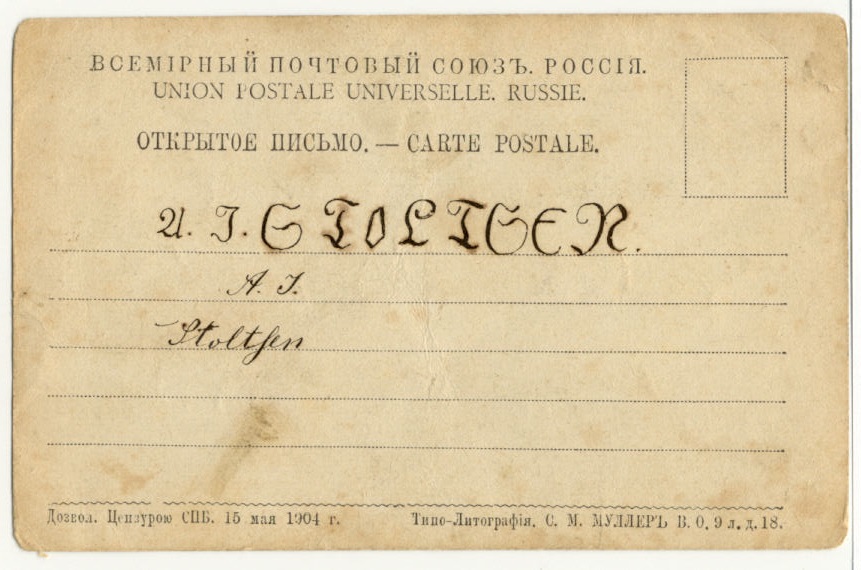 ВСЕМІРНЫЙ ПОЧТОВЫЙ СОЮЗЪ. РОССІЯ.
UNION POSTALE UNIVERSELLE. RUSSIE.
ОТКРЫТОЕ ПИСЬМО. — CARTE POSTALE.
A. J. STOLTSEN.
A. J.
Stoltsen
Дозвол. Цензурою СПБ. 15 мая 1904 г.
Типо-Литографія, С. М. МУЛЛЕРЪ В. О, 9 л. д. 18.